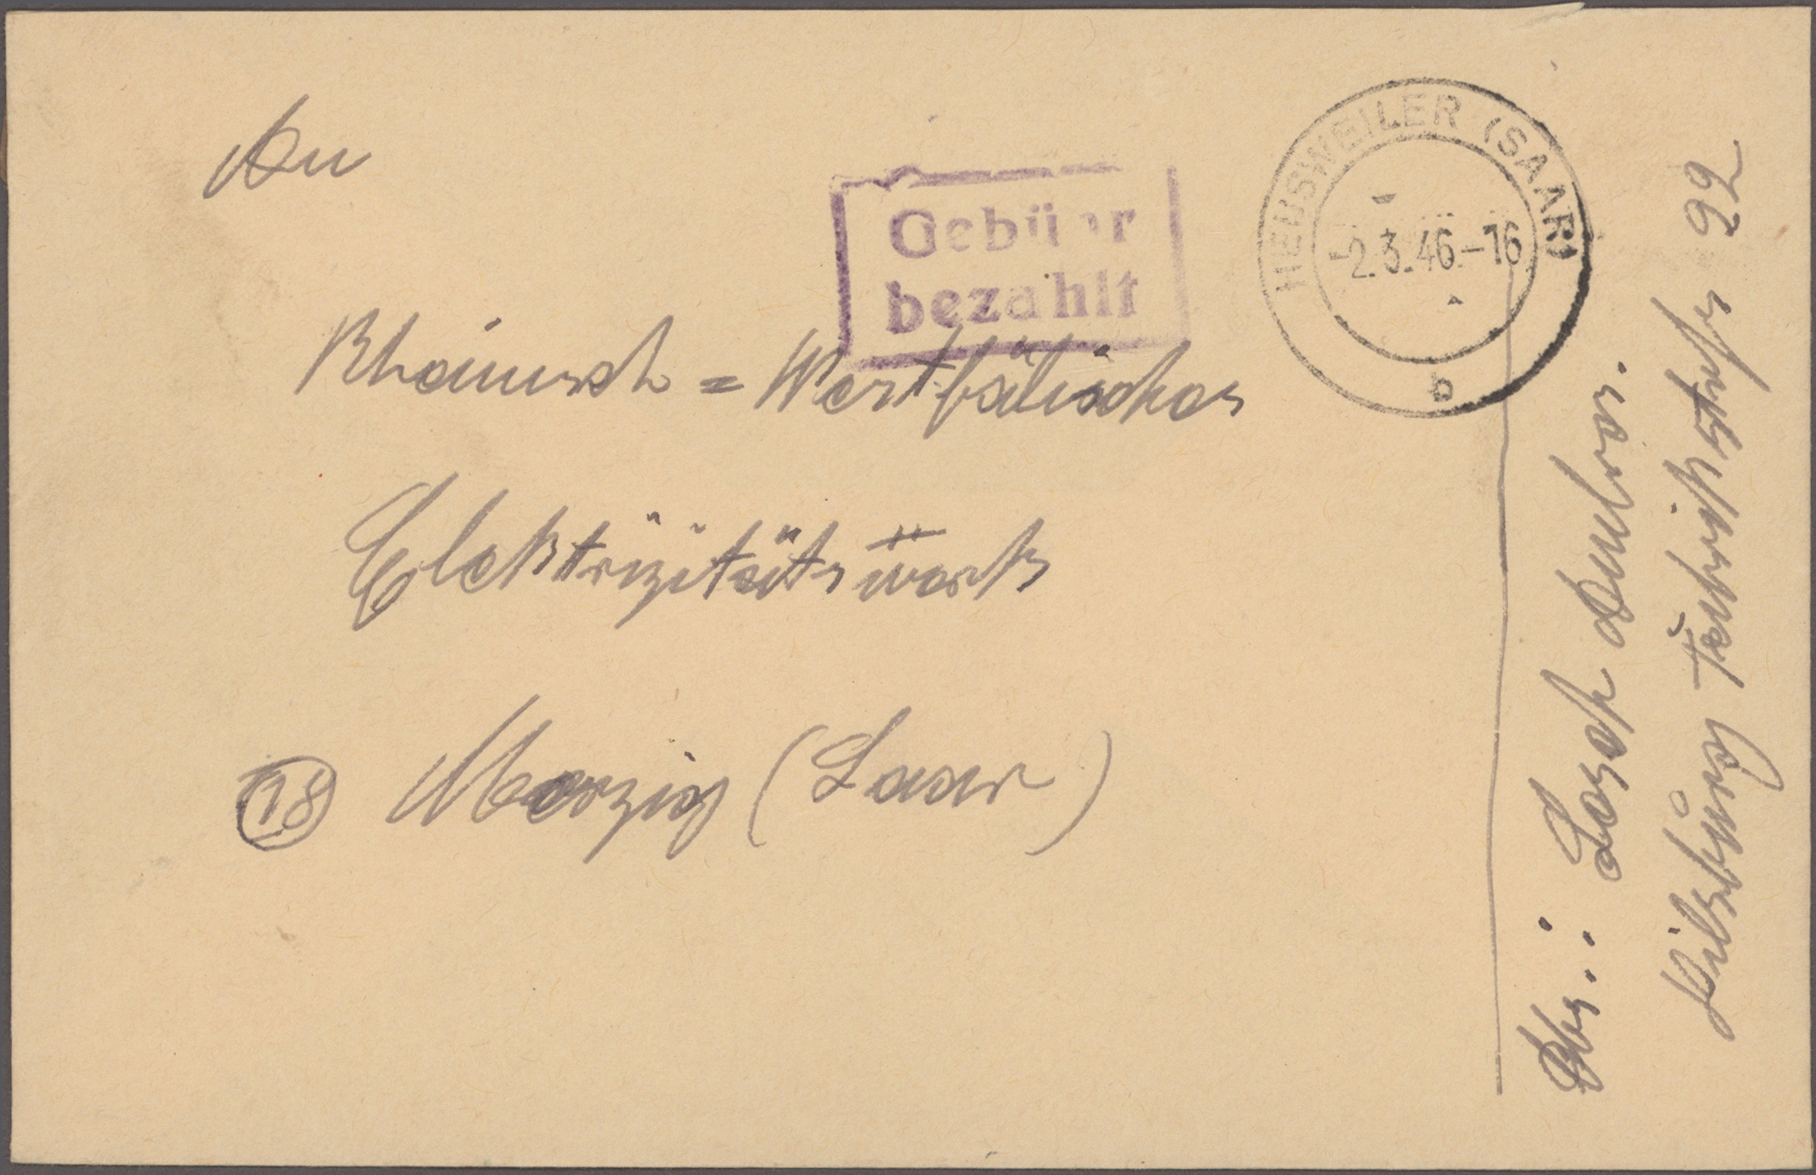 An
Gebühr
bezahlt
HEUSWEILER (SAAR)
-2.3.46.-16
b
Rheinisch = Westfälisches
Elektrizitätswerk
(18) Merzig (Saar)
Abs.:
Hilschbach 92